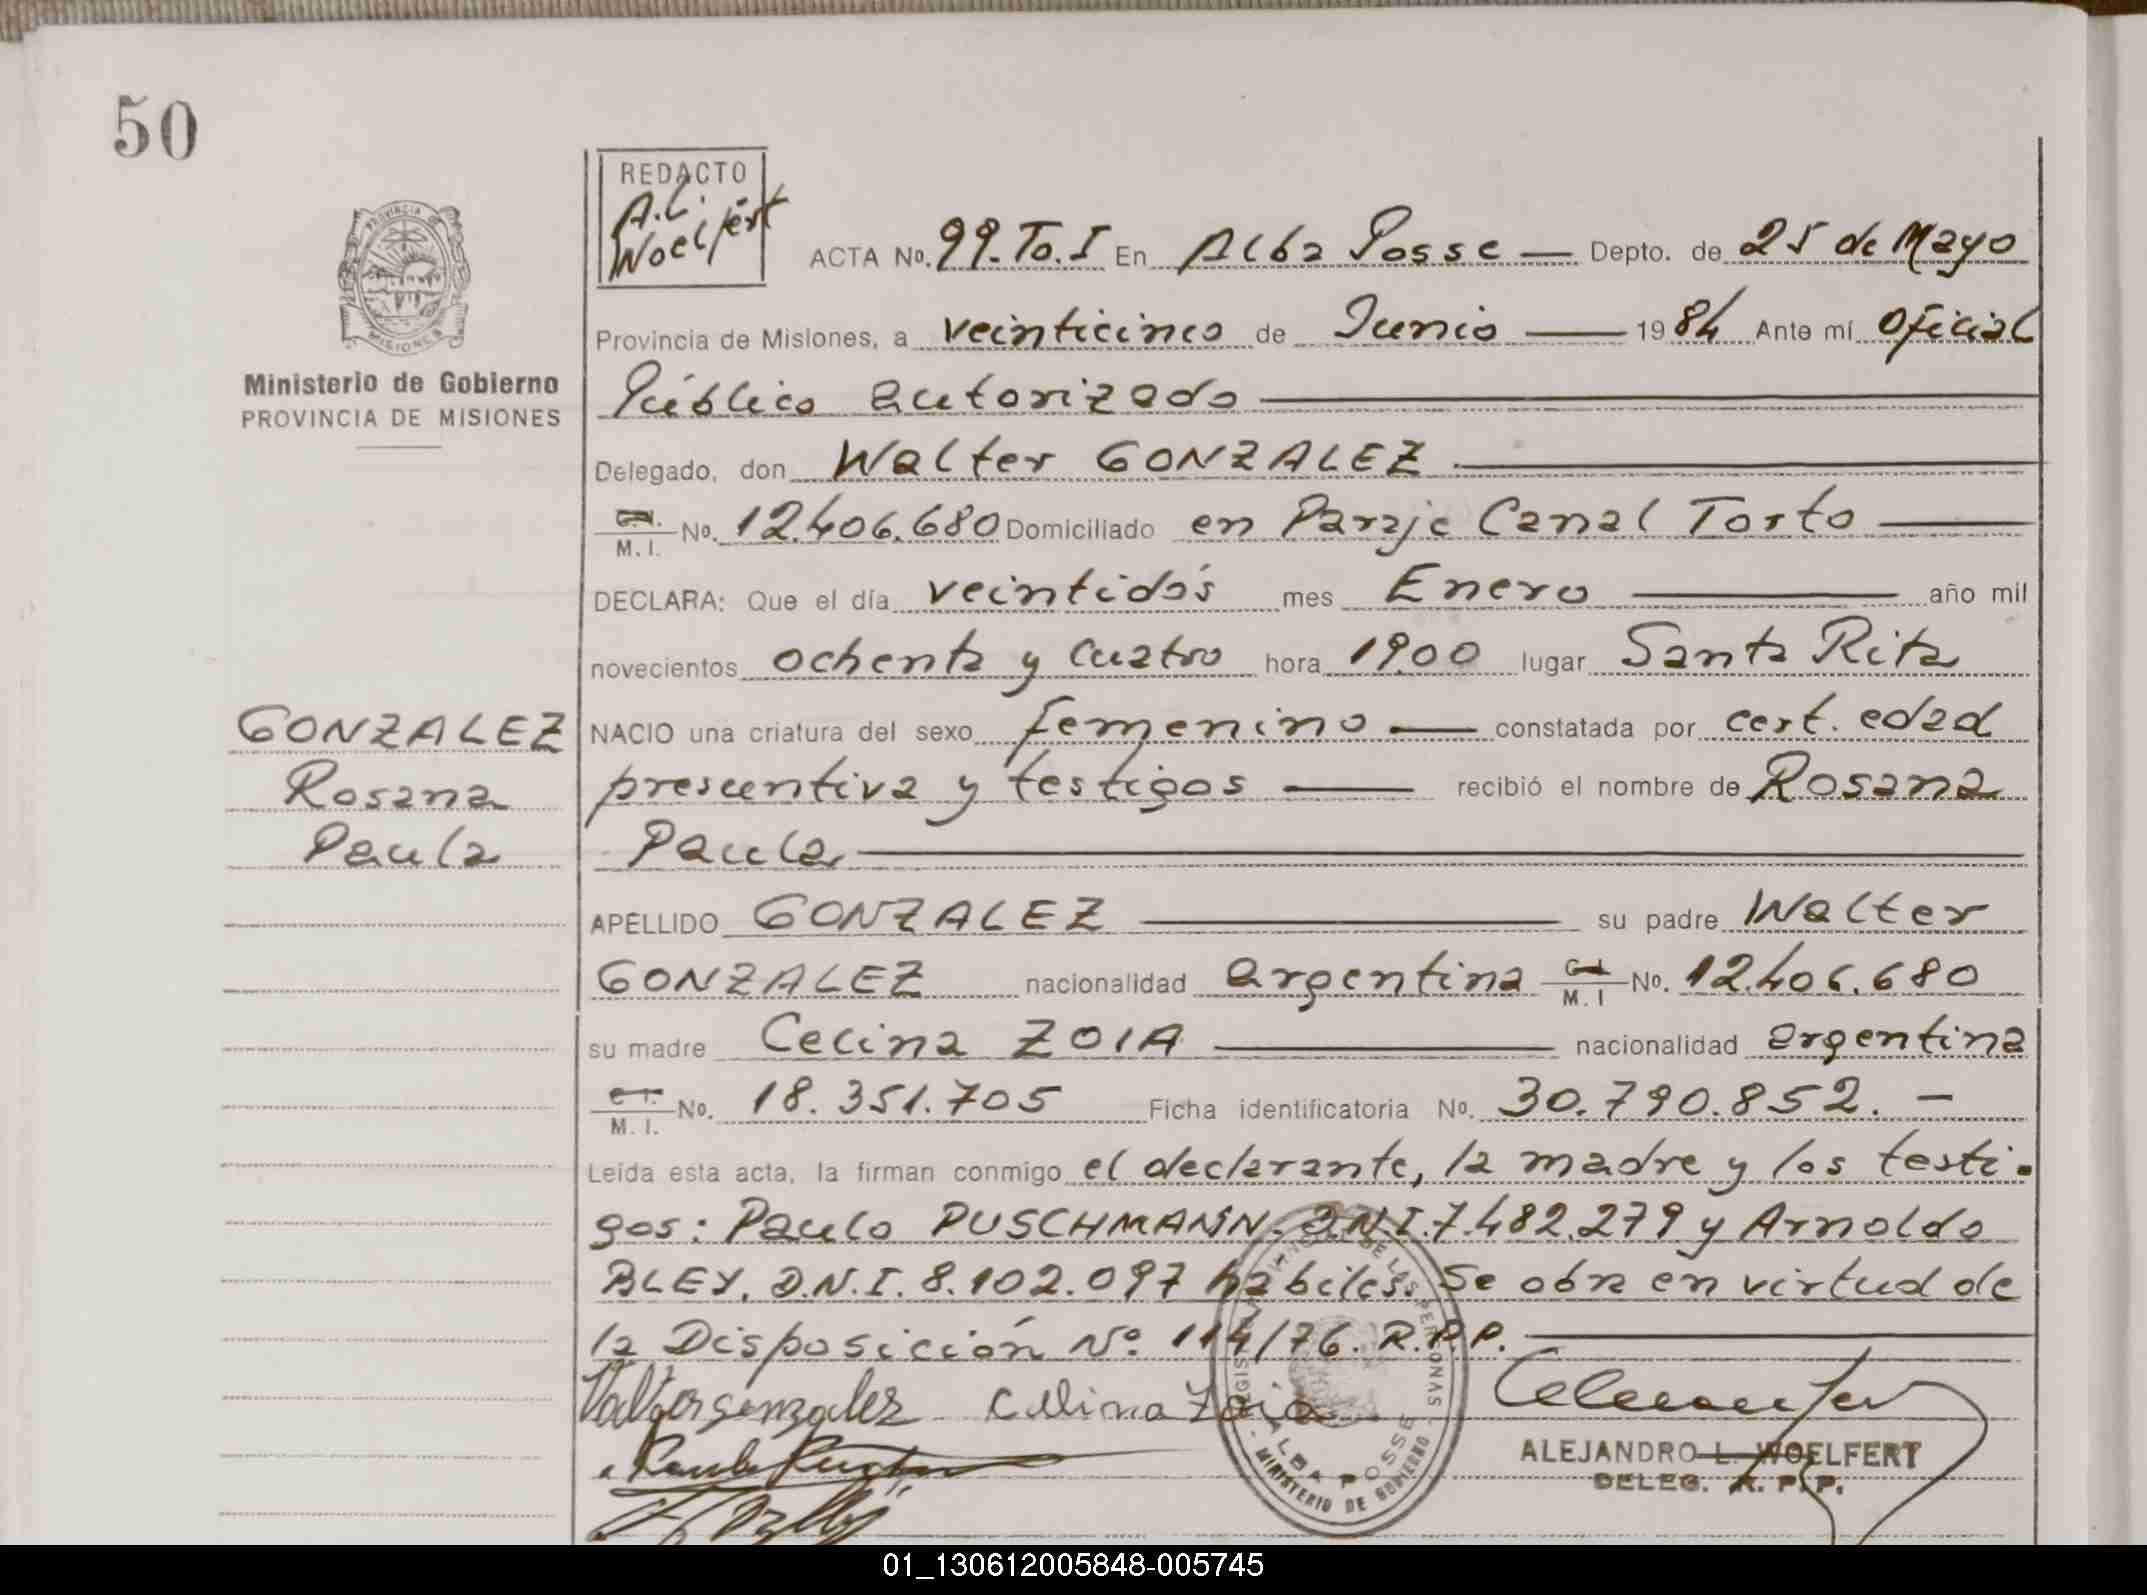 50
REDACTO
A.L. Woelfert
PROVINCIA
MISIONES
Ministerio de Gobierno
PROVINCIA DE MISIONES
ACTA No. 99.To.I En Alba Posse — Depto. de 25 de Mayo
Provincia de Misiones, a veinticinco de Junio — 1984 Ante mí Oficial
Público autorizado
Delegado, don Walter GONZALEZ
M. I. No. 12.406.680 Domiciliado en Paraje Canal Torto —
DECLARA: Que el día veintidós mes Enero — año mil
novecientos ochenta y cuatro hora 19,00 lugar Santa Rita
NACIO una criatura del sexo femenino — constatada por cert. edad
presuentiva y testigos — recibió el nombre de Rosana
Paula
GONZALEZ
Rosana
Paula
APELLIDO GONZALEZ — su padre Walter
GONZALEZ nacionalidad argentina M. I No. 12.406.680
su madre Celina ZOIA — nacionalidad argentina
M. I. No. 18.351.705 Ficha identificatoria No. 30.790.852. —
Leída esta acta, la firman conmigo el declarante, la madre y los testi-
gos: Paulo PUSCHMANN. D.N.I. 7.482.279 y Arnoldo
BLEY. D.N.I. 8.102.097 hábiles. Se obra en virtud de
la Disposición Nº 114/76. R.P.P.
Valter gonzalez Celina Zoia
DE LAS PERSONAS
ALBA POSSE
MINISTERIO DE GOBIERNO
ALEJANDRO L. WOELFERT
DELEG. R. P. P.
01_130612005848-005745